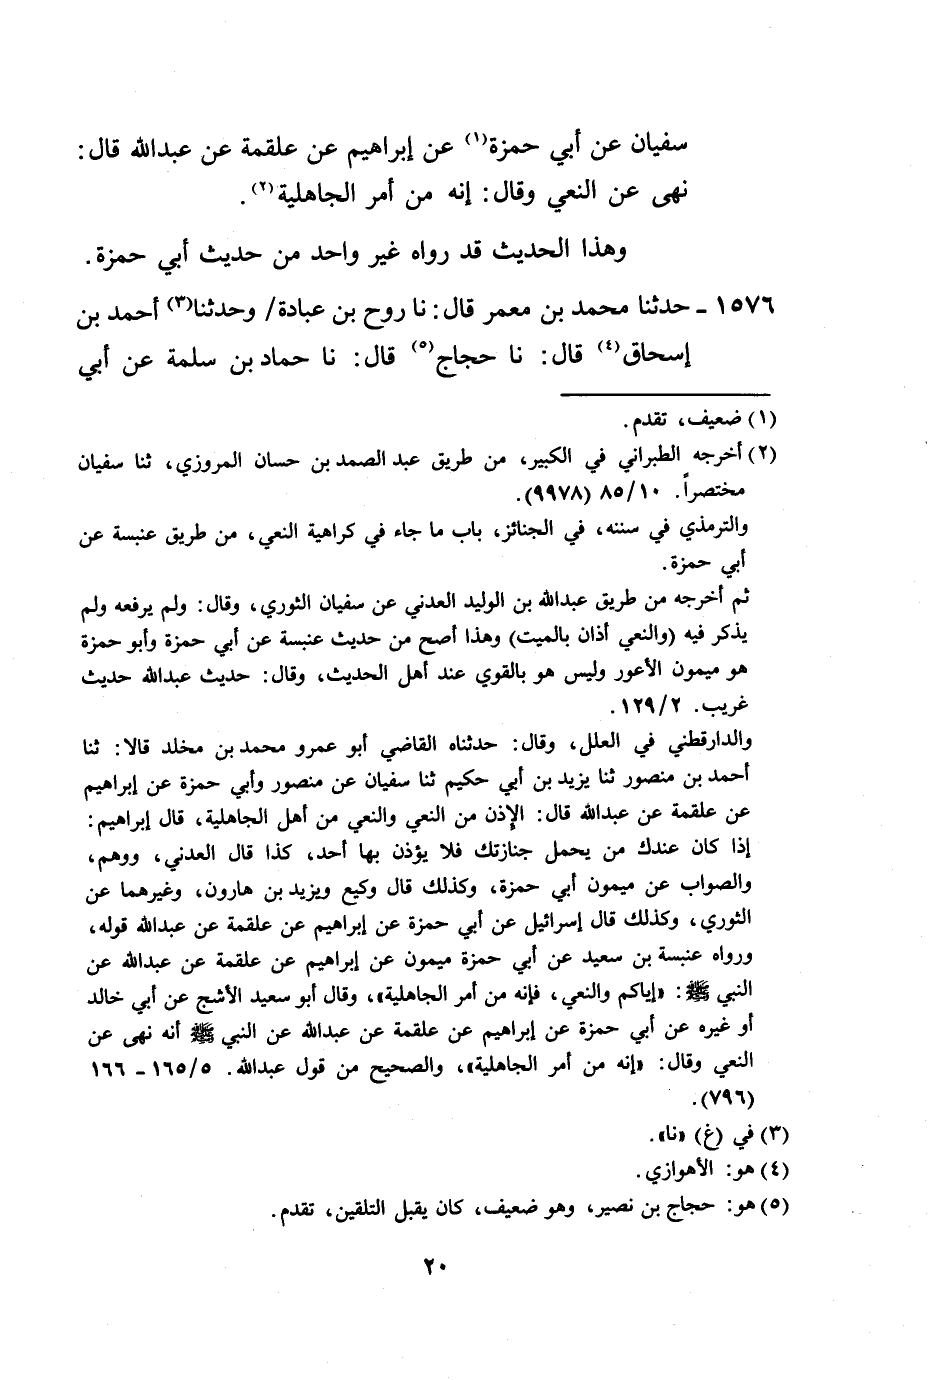 سفيان عن أبي حمزة(١) عن إبراهيم عن علقمة عن عبدالله قال:
نهى عن النعي وقال: إنه من أمر الجاهلية(٢).
وهذا الحديث قد رواه غير واحد من حديث أبي حمزة.
١٥٧٦ ـ حدثنا محمد بن معمر قال: نا روح بن عبادة/ وحدثنا(٣) أحمد بن
إسحاق(٤) قال: نا حجاج(٥) قال: نا حماد بن سلمة عن أبي
(١) ضعيف، تقدم.
(٢) أخرجه الطبراني في الكبير، من طريق عبد الصمد بن حسان المروزي، ثنا سفيان
مختصراً. ٨٥/١٠ (٩٩٧٨).
والترمذي في سننه، في الجنائز، باب ما جاء في كراهية النعي، من طريق عنبسة عن
أبي حمزة.
ثم أخرجه من طريق عبدالله بن الوليد العدني عن سفيان الثوري، وقال: ولم يرفعه ولم
يذكر فيه (والنعي أذان بالميت) وهذا أصح من حديث عنبسة عن أبي حمزة وأبو حمزة
هو ميمون الأعور وليس هو بالقوي عند أهل الحديث، وقال: حديث عبدالله حديث
غريب. ١٢٩/٢.
والدارقطني في العلل، وقال: حدثناه القاضي أبو عمرو محمد بن مخلد قالا: ثنا
أحمد بن منصور ثنا يزيد بن أبي حكيم ثنا سفيان عن منصور وأبي حمزة عن إبراهيم
عن علقمة عن عبدالله قال: الإذن من النعي والنعي من أهل الجاهلية، قال إبراهيم:
إذا كان عندك من يحمل جنازتك فلا يؤذن بها أحد، كذا قال العدني، ووهم،
والصواب عن ميمون أبي حمزة، وكذلك قال وكيع ويزيد بن هارون، وغيرهما عن
الثوري، وكذلك قال إسرائيل عن أبي حمزة عن إبراهيم عن علقمة عن عبدالله قوله،
ورواه عنبسة بن سعيد عن أبي حمزة ميمون عن إبراهيم عن علقمة عن عبدالله عن
النبي ﷺ: «إياكم والنعي، فإنه من أمر الجاهلية»، وقال أبو سعيد الأشج عن أبي خالد
أو غيره عن أبي حمزة عن إبراهيم عن علقمة عن عبدالله عن النبي ﷺ أنه نهى عن
النعي وقال: «إنه من أمر الجاهلية»، والصحيح من قول عبدالله. ١٦٥/٥ ـ ١٦٦
(٧٩٦).
(٣) في (غ) «نا».
(٤) هو: الأهوازي.
(٥) هو: حجاج بن نصير، وهو ضعيف، كان يقبل التلقين، تقدم.
٢٠